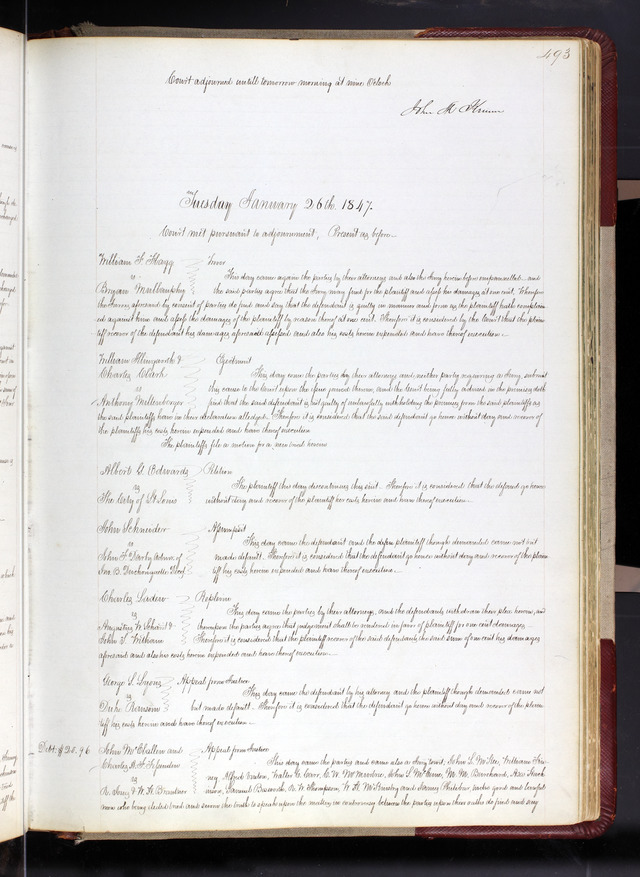 493
Court adjourned untill tomorrow morning at nine Oclock
John M Krum
Tuesday January 26th. 1847.
Court met pursuant to adjournment, Present as before—
William F. Flagg
vs
Bryan Mullanphy
Trover
This day came again the parties by their attorneys and also the Jury herein before empannelled and
the said parties agree that the Jury may find for the plaintiff and assess his damages at one cent. Therefore
the Jurors aforesaid by consent of parties do find and say that the defendant is guilty in manner and form as the plaintiff hath complain
ed against him and assess the damages of the plaintiff by reason thereof at one cent. Therefore it is considered by the Court that the plain
tiff recover of the defendant his damages aforesaid assessed and also his costs herein expended and have thereof execution—
William &
Charles Clark
vs
Anthony
Ejectment
This day came the parties by their attorneys and neither party requiring a Jury, submit
this cause to the Court upon the issue joined therein, and the Court being fully advised in the premises doth
find that the said defendant is not guilty of unlawfully withholding the premises from the said plaintiffs as
the said plaintiffs have in their declaration alledged. Therefore it is considered that the said defendant go hence without day and recover of
the plaintiffs his costs herein expended and have thereof execution
The plaintiffs file a motion for a new trial herein
Albert G. Edwards
vs
The City of St Louis
Petition
The plaintiff this day discontinues this suit. Therefore it is considered that the defendt go hence
without day and recover of the plaintiff her costs herein and have thereof execution—
John Schneider
vs
John F Darby Admr. of
Assumpsit
This day came the defendant and the plaintiff though demanded came not but
made default. Therefore it is considered that the defendant go hence without day and recover of the plain
tiff his costs herein expended and have thereof execution—
Charles
vs
Augustus W. &
John T.
Replevin
This day came the parties by their attorneys, and the defendants withdraw their plea herein, and
thereupon the parties agree that judgement shall be rendered in favor of plaintiff for one cent damages—
Therefore it is considered that the plaintiff recover of the said defendants the said sum of one cent his damages
aforesaid and also his costs herein expended and have thereof execution—
George S. Lyons
vs
Duke Ransom
Appeal from Justice
This day came the defendant by his attorney and the plaintiff though demanded came not
but made default. Therefore it is considered that the defendant go hence without day and recover of the plain
tiff his costs herein and have thereof execution—
Debt $28.96
John and
Charles
vs
& W. F.
Appeal from Justice
This day came the parties and came also a Jury towit, John L. McKee, William
Alfred Walter G. Carr, C. W. John S. M. M. Asa
Samuel A. W. Thompson, W. H. and James twelve good and lawful
men who being elected tried and sworn the truth to speak upon the matters in controversy between the parties upon their oaths do find and say